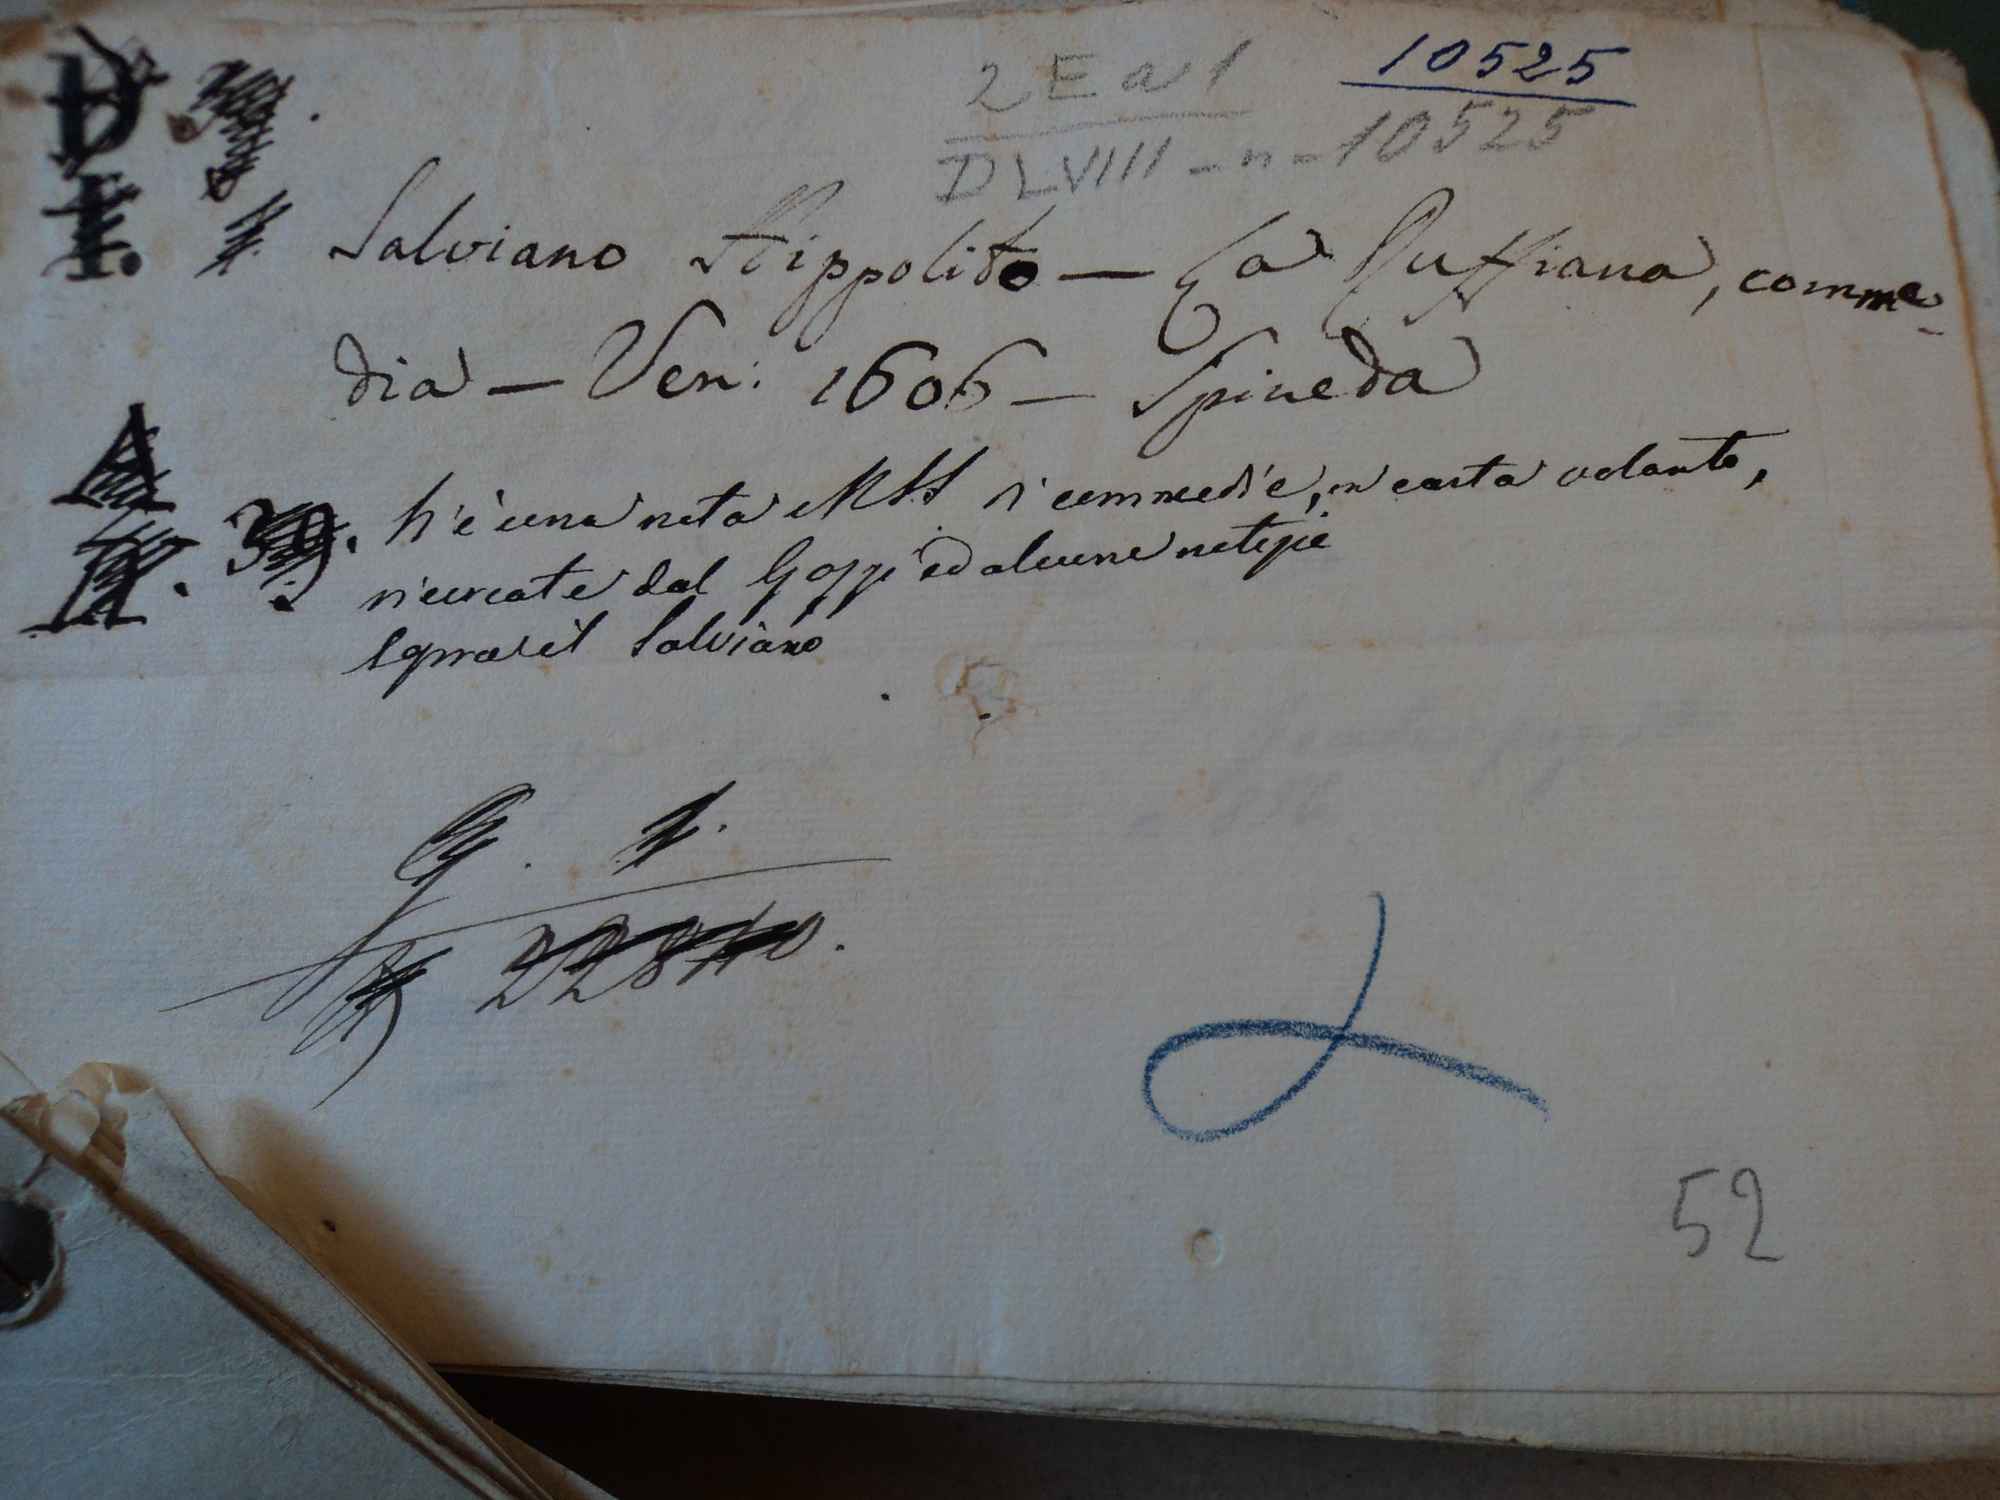 2 E a 1 10525
DLVIII - n - 10525
Salviano Hippolito — La Ruffiana, comme-
dia — Ven: 1606 — Spineda
39. V'è una nota MSS di commedie, in carta volante,
ricercate dal Gozzi ed alcune notizie
sopra il Salviano
G. 1.
22840.
52